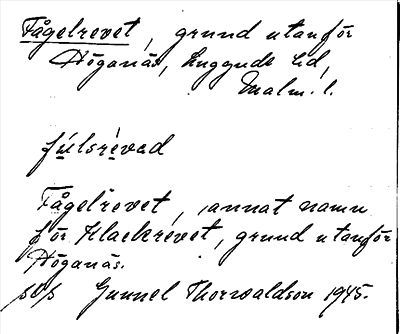 Fågelrevet, grund utanför
Höganäs, Luggude hd,
Malm. l.
fúlsrévəd
Fågelrevet, annat namn
för Klackrevet, grund utanför
Höganäs.
Gunnel Thorwaldson 1945.